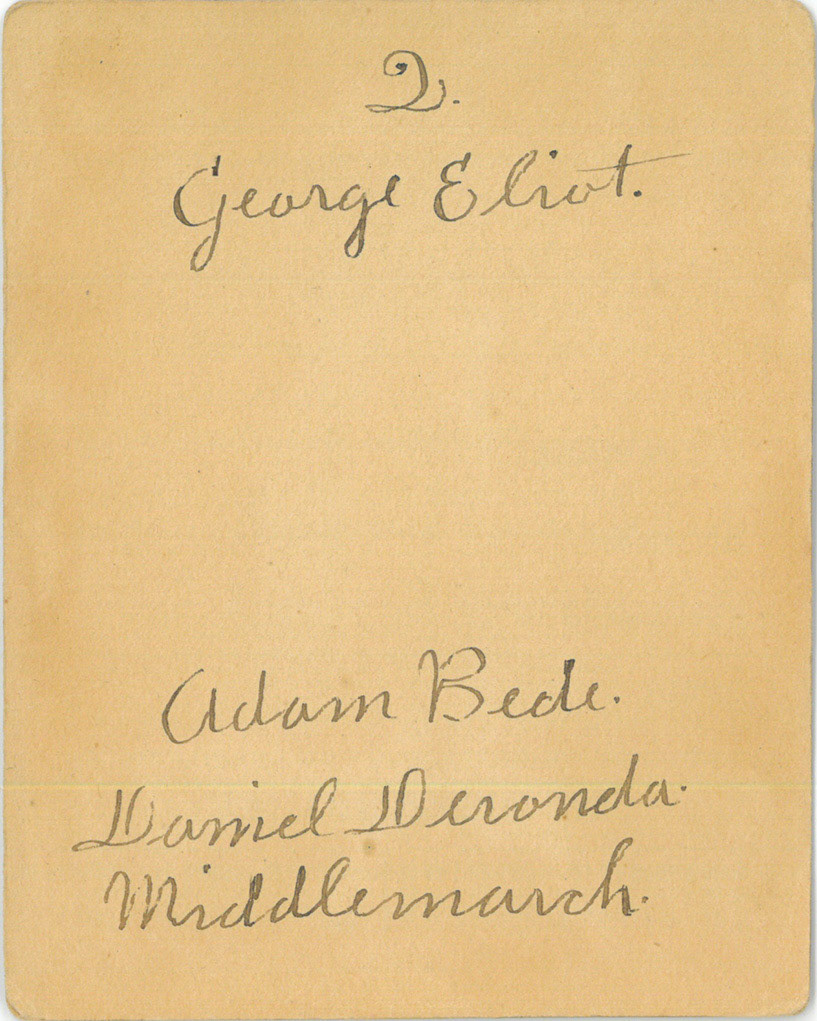 2.
George Eliot.
Adam Bede.
Daniel Deronda.
Middlemarch.